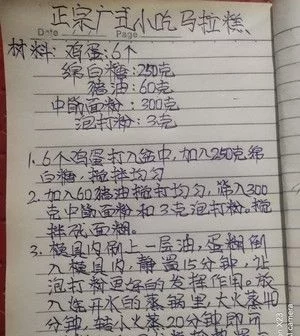 正宗广式小吃马拉糕
Date Page
材料:鸡蛋:6个
绵白糖:250克
猪油:60克
中筋面粉:300克
泡打粉:3克
1. 6个鸡蛋打入盆中,加入250克绵
白糖,搅拌均匀
2. 加入60猪油搅打均匀,筛入300
克中筋面粉和3克泡打粉。搅
拌成面糊。
3. 模具内倒上一层油,蛋糊倒
入模具内,静置15分钟,让
泡打粉更好的发挥作用。放
入烧开水的蒸锅里,大火蒸40
分钟,转小火蒸20分钟即可